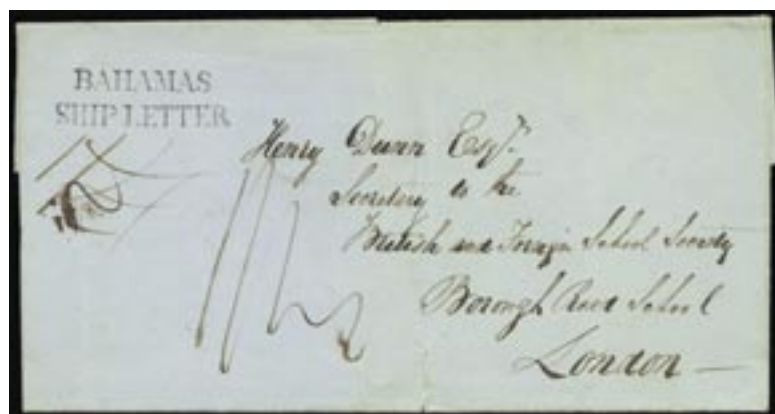 BAHAMAS
SHIP LETTER
Henry Dunn Esqr.
Secretary to the
British and Foreign School Society
Borough Road School
London